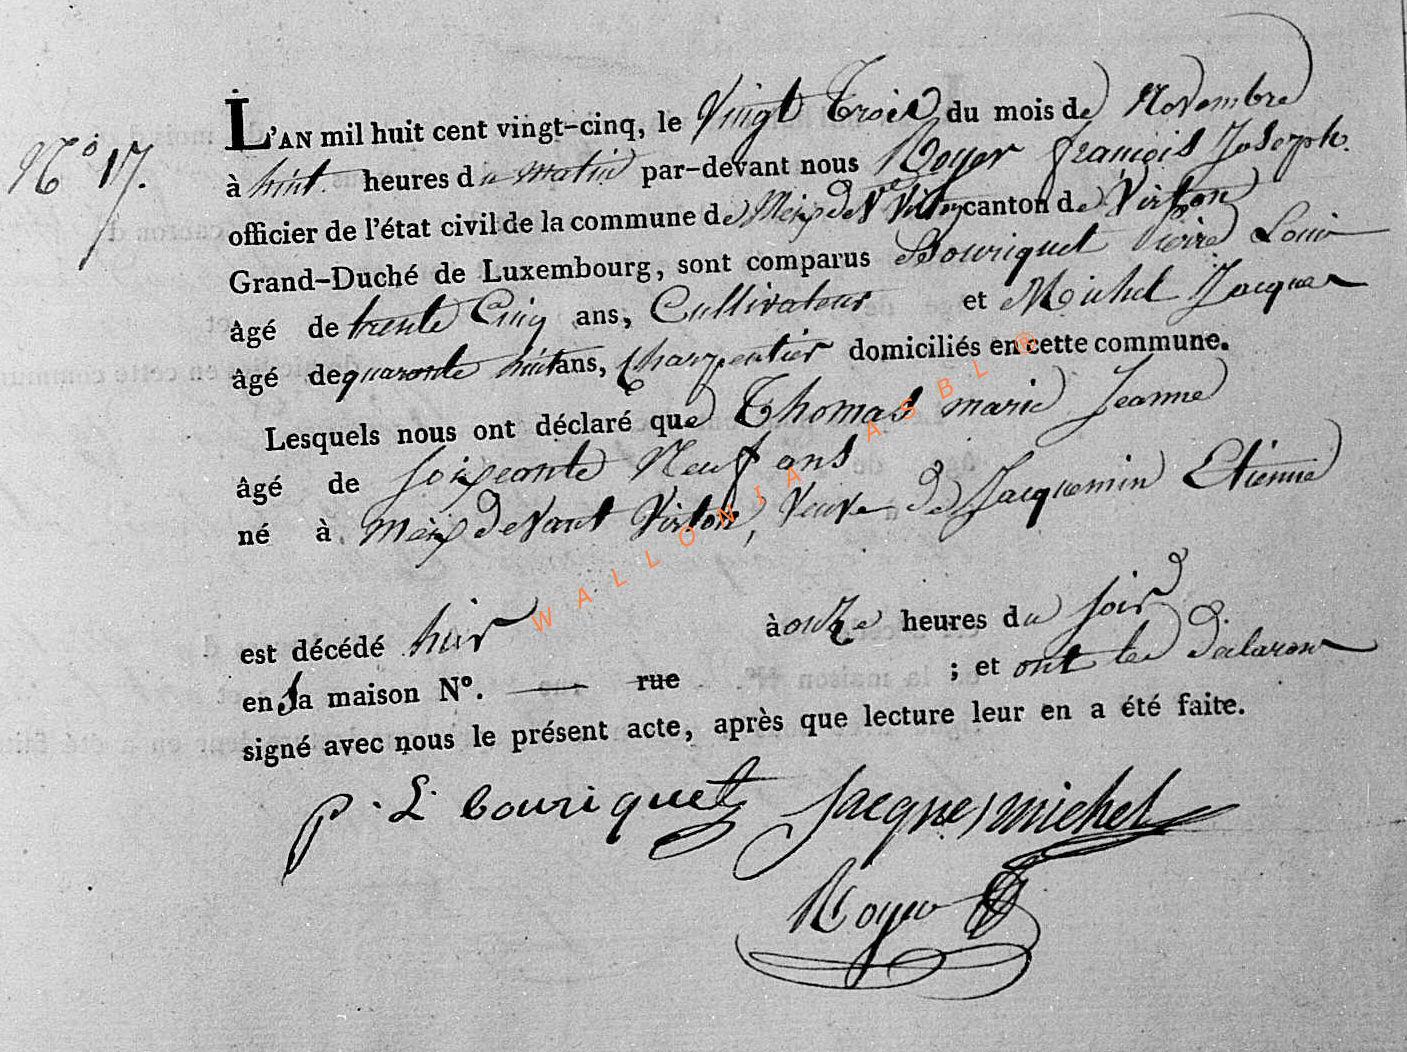 N° 17.
L'AN mil huit cent vingt-cinq, le Vingt Trois du mois de Novembre
à huit heures du matin par-devant nous Royer françois Joseph.
officier de l'état civil de la commune de Meix det Virton canton de Virton
Grand-Duché de Luxembourg, sont comparus Bouriquet Pierre Louis
âgé de trente Cinq ans, Cultivateur et Michel Jacques
âgé de quarante huit ans, Charpentier domiciliés en cette commune.
Lesquels nous ont déclaré que Thomas marie Jeanne
âgé de soixante Neuf ans
né à Meix devant Virton, Veuve de Jacquemin Etienne
est décédé hier à onze heures du soir
en sa maison N°. — rue ; et ont les déclarans
signé avec nous le présent acte, après que lecture leur en a été faite.
p. L. bouriquet Jacques michel
Royer
WALLONIA ASBL ®